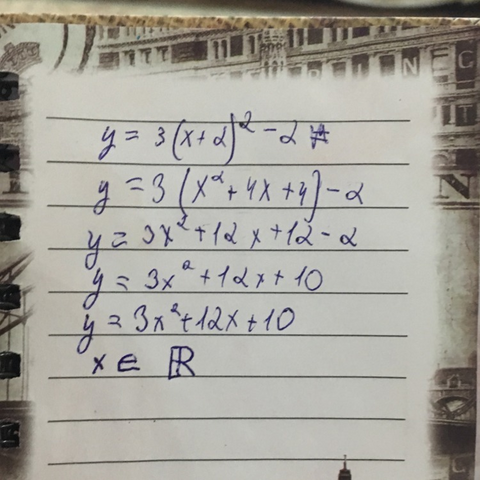 y = 3(x+2)² - 2
y = 3(x²+4x+4) - 2
y = 3x²+12x+12-2
y = 3x²+12x+10
y = 3x²+12x+10
x ∈ ℝ